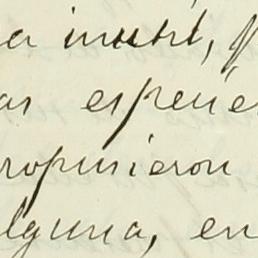 a inutil, p
as espeúe
ropusieron
lguna, en